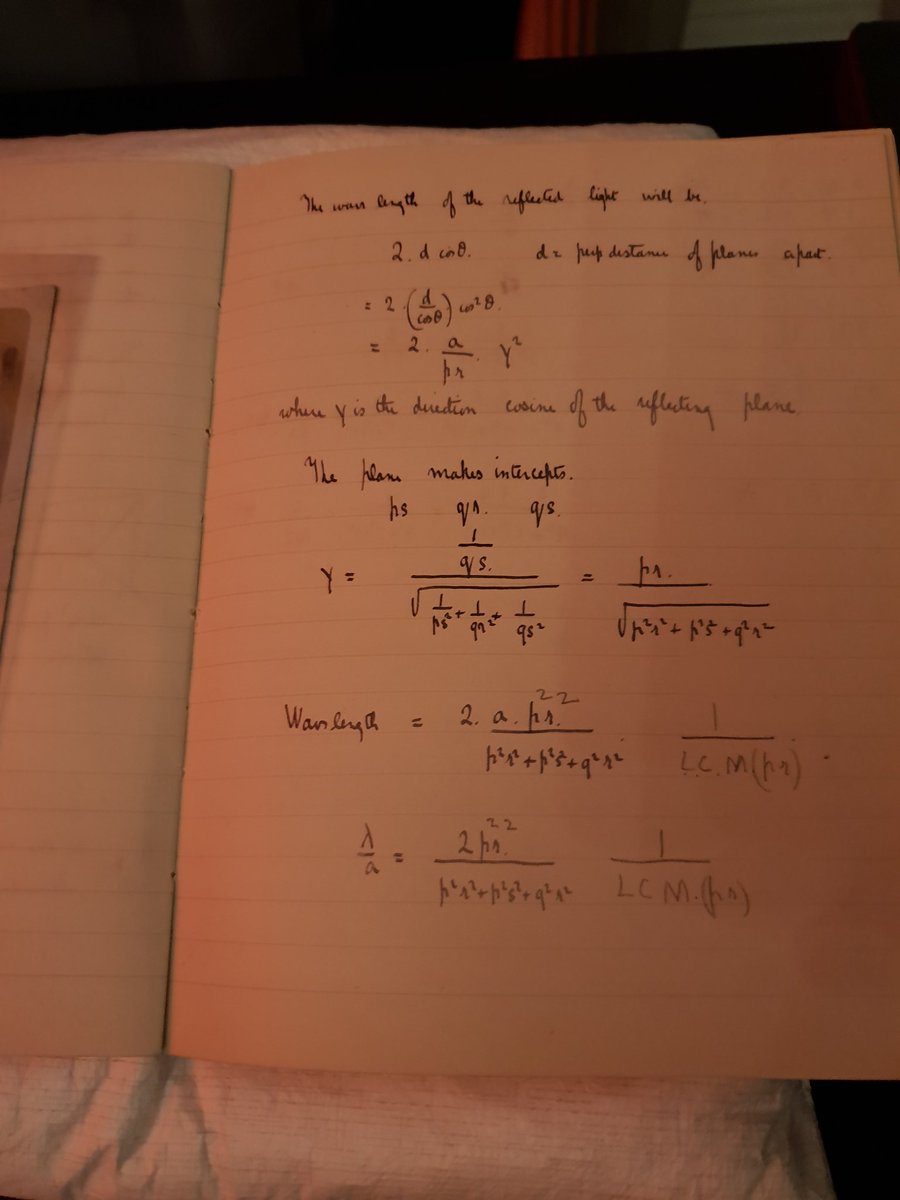 The wave length of the reflected light will be.
2. d cosθ.    d = perp distance of planes apart.
= 2 (d/cosθ) cos²θ.
= 2. a/pr. γ²
where γ is the direction cosine of the reflecting plane
The plane makes intercepts.
ps    qr.    qs.
γ = (1/qs.) / √(1/ps² + 1/qr² + 1/qs²) = pr. / √(p²r² + p²s² + q²r²)
Wavelength = 2. a. p²r². / (p²r² + p²s² + q²r²)    1 / L.C.M(pr).
λ/a = 2p²r². / (p²r² + p²s² + q²r²)    1 / LCM.(pr)